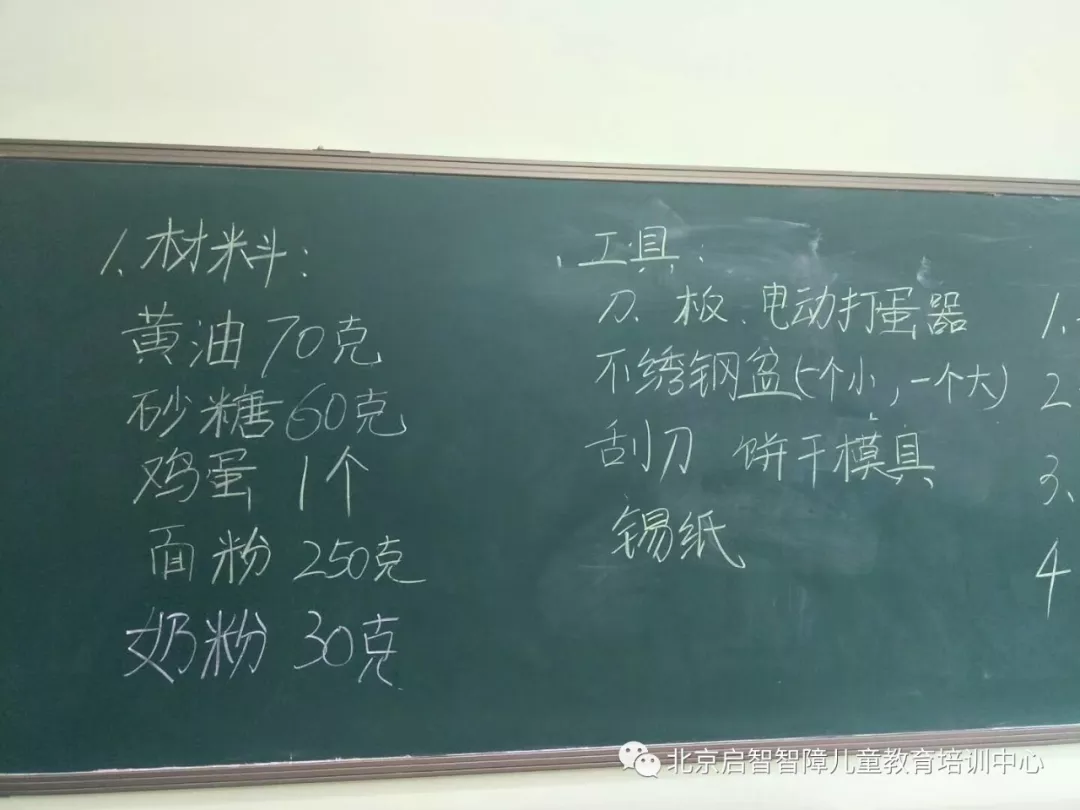 1.材料:
黄油70克
砂糖60克
鸡蛋1个
面粉250克
奶粉30克
工具:
刀、板、电动打蛋器
不绣钢盆(一个小,一个大)
刮刀 饼干模具
锡纸
1、
2
3、
4
北京启智智障儿童教育培训中心